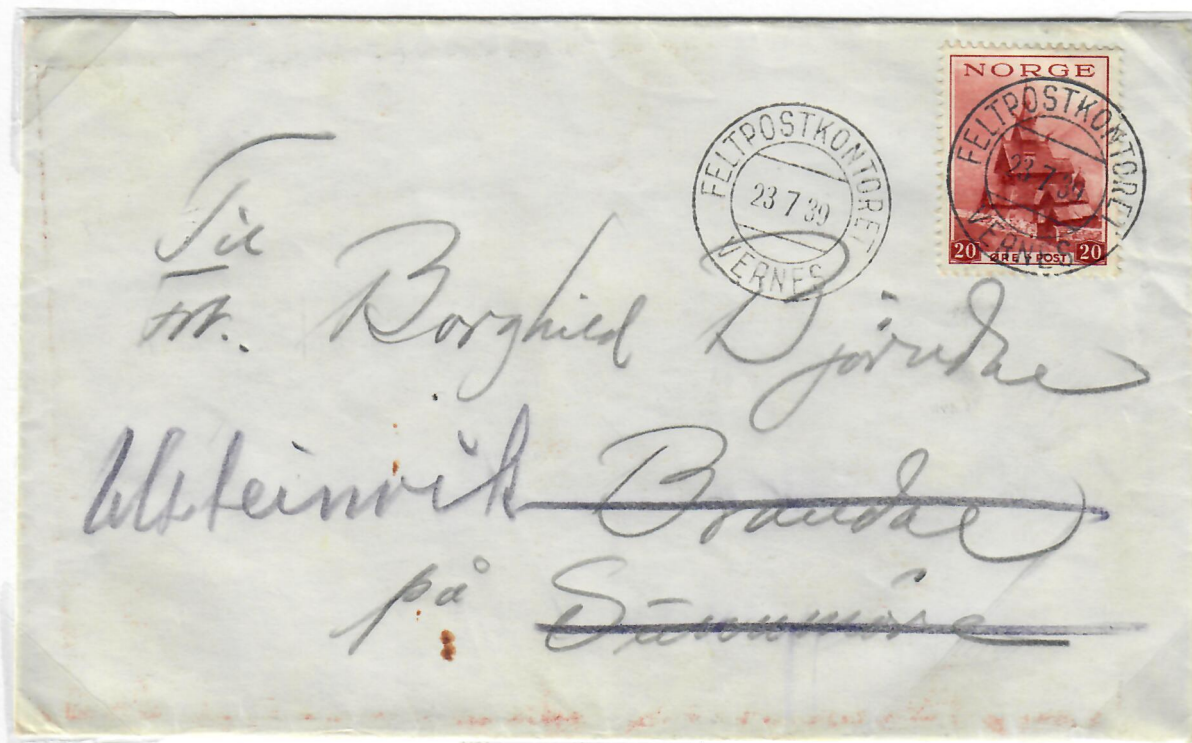 NORGE
20 ØRE POST 20
FELTPOSTKONTORET
23 7 39
VERNES
FELTPOSTKONTORET
23 7 39
VERNES
Til
Frk. Borghild Djörudae
Ulsteinvik Brandae
på Sunnmöre